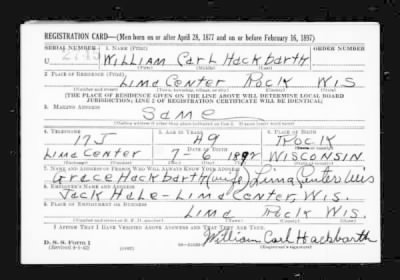 REGISTRATION CARD—(Men born on or after April 28, 1877 and on or before February 16, 1897)
SERIAL NUMBER 1. NAME (Print) ORDER NUMBER
U William Carl Hackbarth
(First) (Middle) (Last)
2. PLACE OF RESIDENCE (Print)
Lima Center Rock Wis
(Number and street) (Town, township, village, or city) (County) (State)
[THE PLACE OF RESIDENCE GIVEN ON THE LINE ABOVE WILL DETERMINE LOCAL BOARD
JURISDICTION; LINE 2 OF REGISTRATION CERTIFICATE WILL BE IDENTICAL]
3. MAILING ADDRESS
Same
[Mailing address if other than place indicated on line 2. If same insert word same]
4. TELEPHONE 5. AGE IN YEARS 6. PLACE OF BIRTH
17J 49 Rock
DATE OF BIRTH
Lima Center 7-6 1892 Wisconsin
7. NAME AND ADDRESS OF PERSON WHO WILL ALWAYS KNOW YOUR ADDRESS
Grace Hackbarth (wife) Lima Center Wis
8. EMPLOYER'S NAME AND ADDRESS
Jack Hale-Lima Center, Wis.
9. PLACE OF EMPLOYMENT OR BUSINESS
Lima Rock Wis.
(Number and street or R. F. D. number) (Town) (County) (State)
I AFFIRM THAT I HAVE VERIFIED ABOVE ANSWERS AND THAT THEY ARE TRUE.
D. S. S. Form 1
(Revised 4-1-42) (over)
William Carl Hackbarth